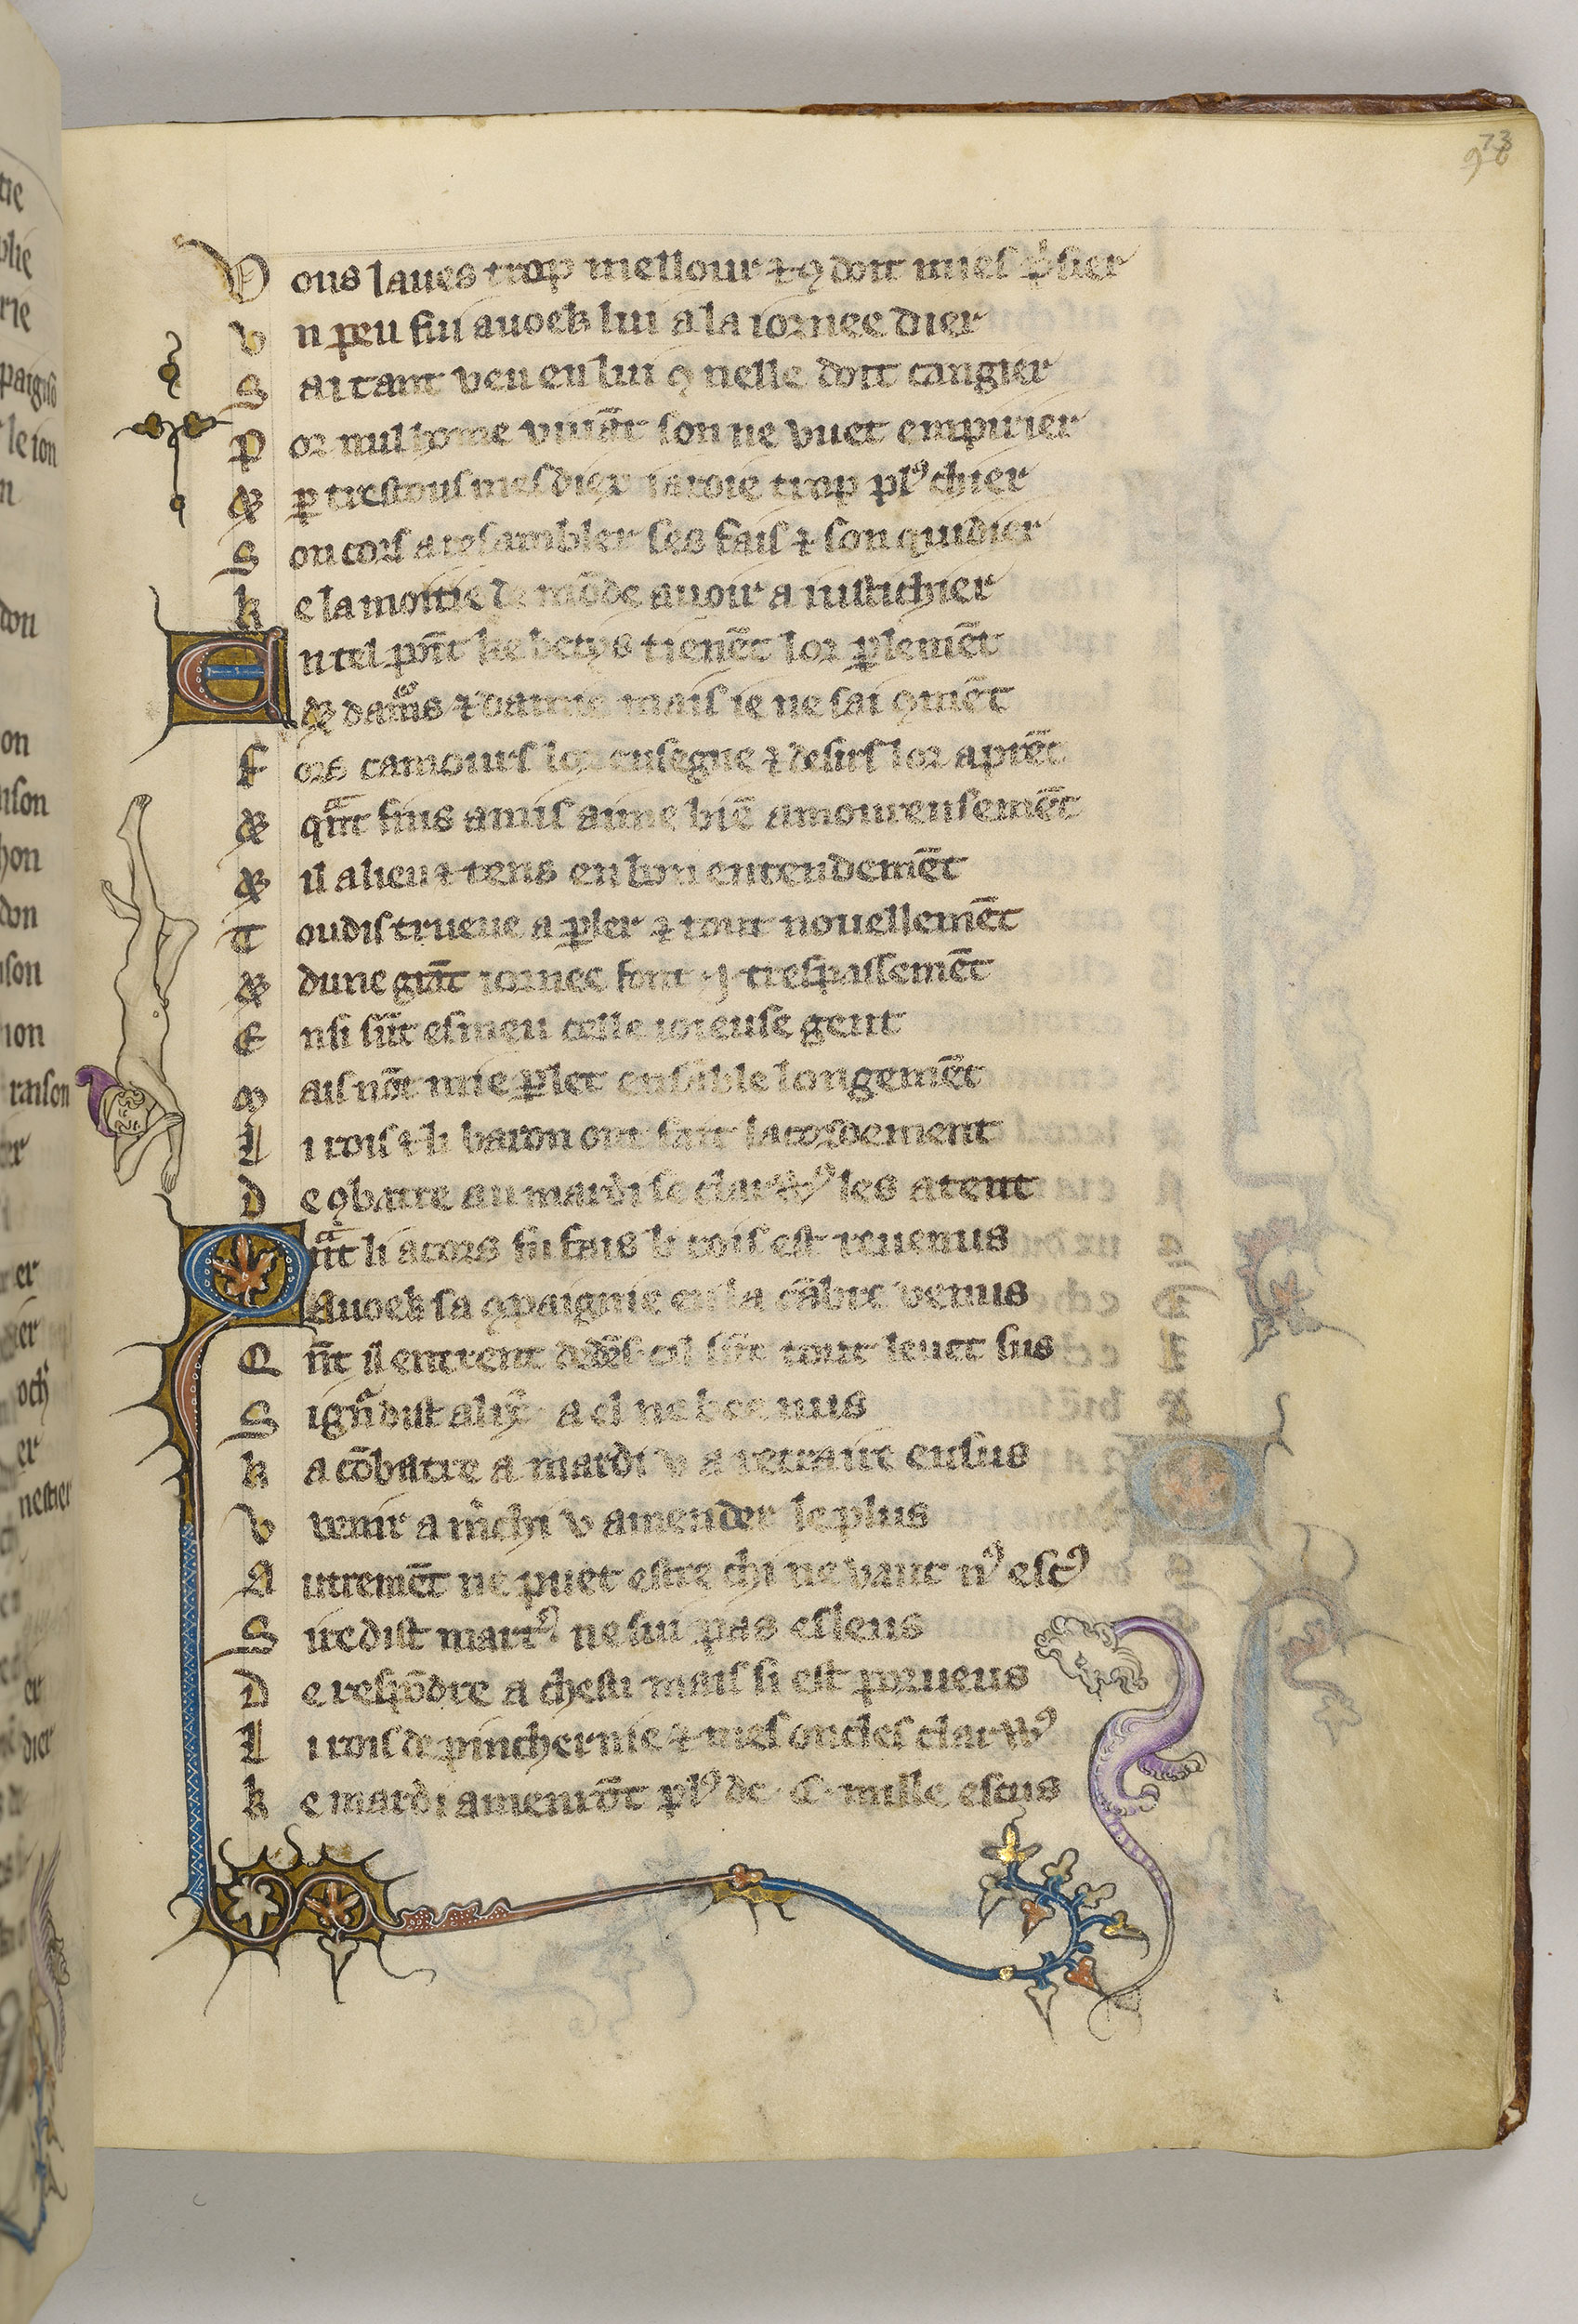 73
Vous laues trop mellour ⁊ ꝯ doit miels ꝓsier
Vn peu fui auoeks lui a la iornee dier
Sai tant veu en lui ꝯ nelle doit cangier
Por nul home viuāt son ne vuet empirier
⁊ ꝑ trestous mes diex iaroie trop plꝰ chier
Son cors a resambler ses fais ⁊ son quidier
Ke la moitie de mōde auoir a iustichier
En tel poīt ke betys tienēt lor ꝑlemēt
⁊ damᵒˢ ⁊ damie mais ie ne sai ꝯmēt
Fors camours lor ensegne ⁊ desirs lor aprēt
⁊ qᵃnt fins amis aime biē amoureusemēt
⁊ il a lieu ⁊ tens en bon entendemēt
Toudis trueue a ꝑler ⁊ tout nouellemēt
⁊ dune grāt iornee font ·j· trespassemēt
Ensi sūt esmeu celle ioieuse gent
Mais nōt mie ꝑlet ensāble longemēt
Li rois ⁊ li baron ont fait lacordement
De ꝯbatre au mardi se clarꝰ les atent
Qᵃnt li acors fu fais li rois est reuenus
Auoeks sa ꝯpaignie en la cābre venus
Qn̄t il entrent dedēs cil sūt tout leuet sus
Sign̄ dist alix̾ a el ne bee nus
Ka cōbatre a mardi v a retraire ensus
V venir a m̾chi v amender le plus
Autremēt ne puet estre chi ne vaut nꝰ escꝰ
Sire dist martꝰ ne sui pas esleus
De respōdre a chesti mais si est porueus
Li rois de pinchernie ⁊ mes oncles clarꝰ
Ke mardi amenrōt plꝰ de ·C· mille escus